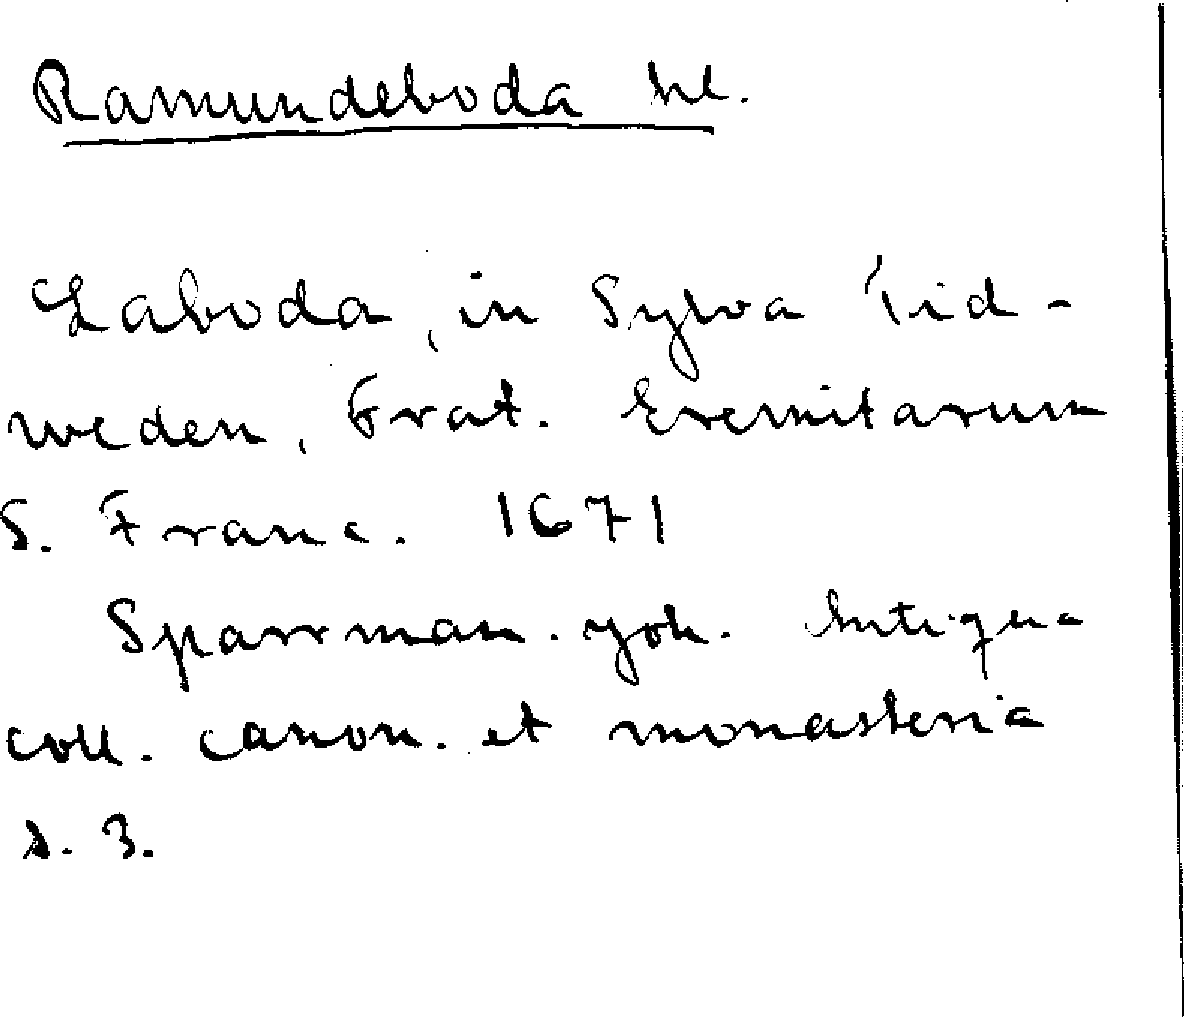 Ramundeboda kl.
Laboda, in Sylva Tid-
weden, Frat. Eremitarum
S. Franc. 1671
Sparrman. Joh. Antiqua
coll. canon. et monasteria
s. 3.